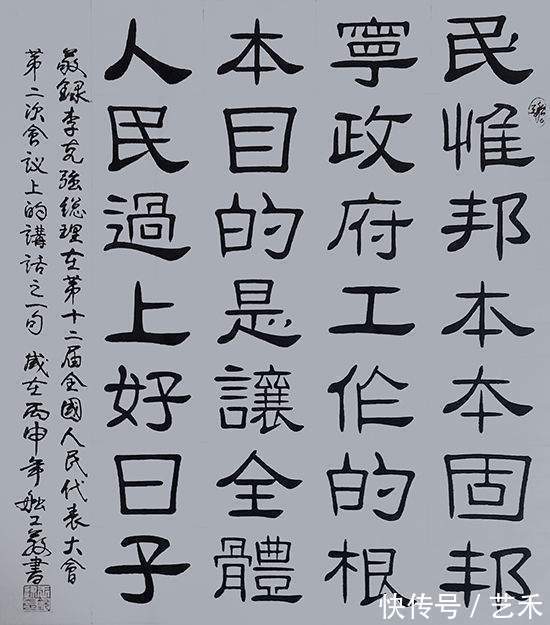 民惟邦本本固邦
寧政府工作的根
本目的是讓全體
人民過上好日子
敬録李克強総理在第十二届全國人民代表大會
第二次會议上的講话之一句 歲在丙申年
書
快传号/艺禾